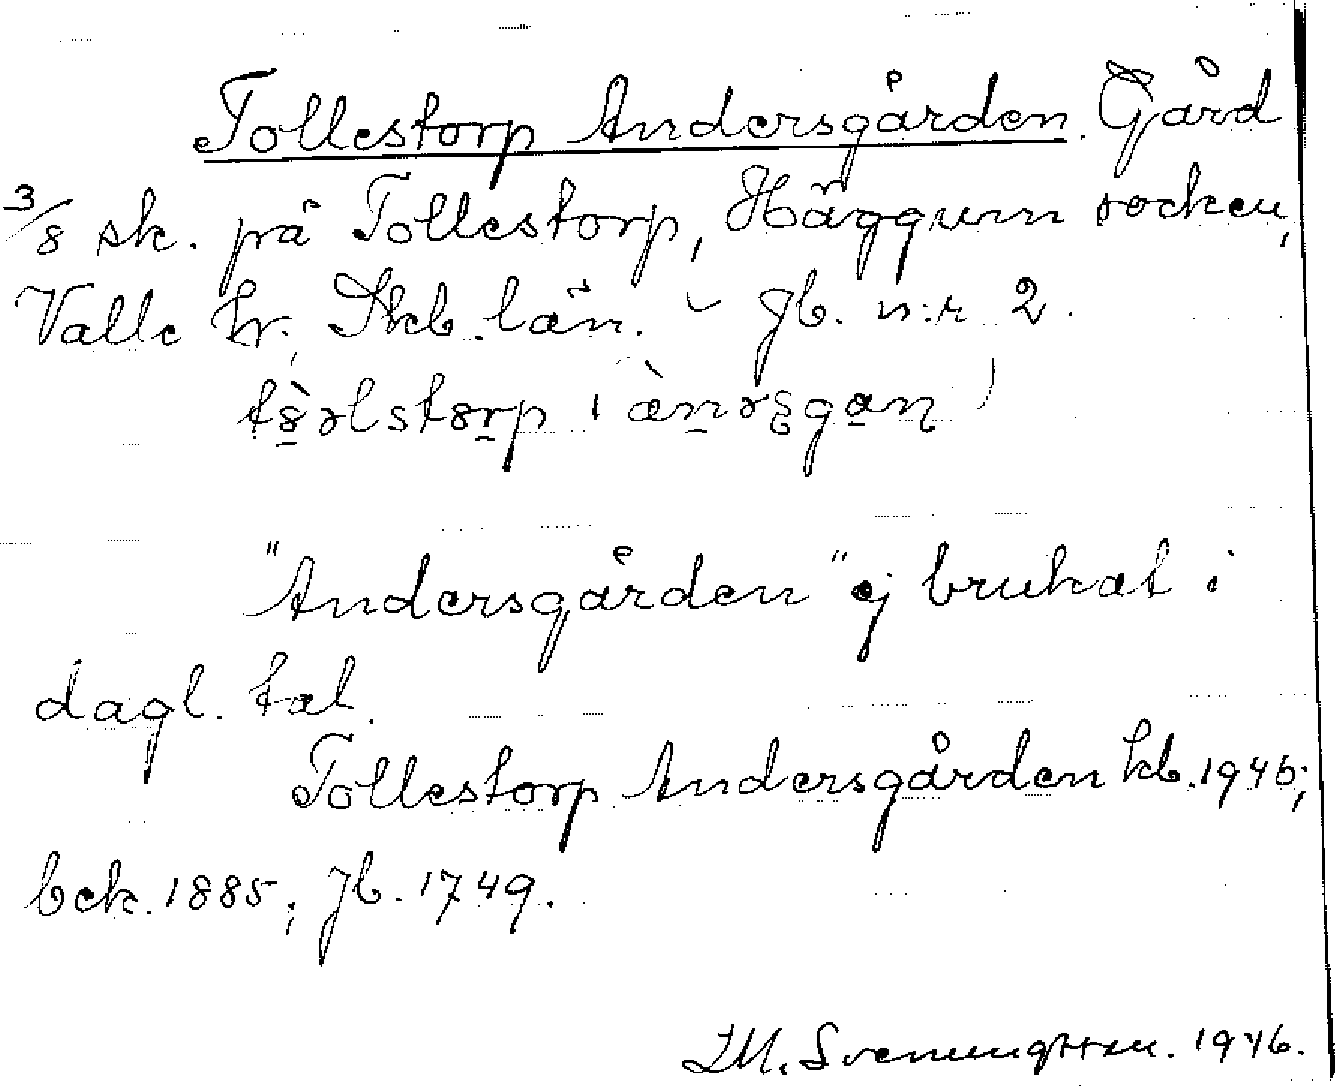 Tollestorp Andersgården. Gård
3/8 sk. på Tollestorp, Häggum socken,
Valle hr. Skb. län. Jb. n:r 2.
"Andersgården" ej brukat i
dagl. tal.
Tollestorp Andersgården kb. 1946;
bek. 1885; Jb. 1749.
1946.